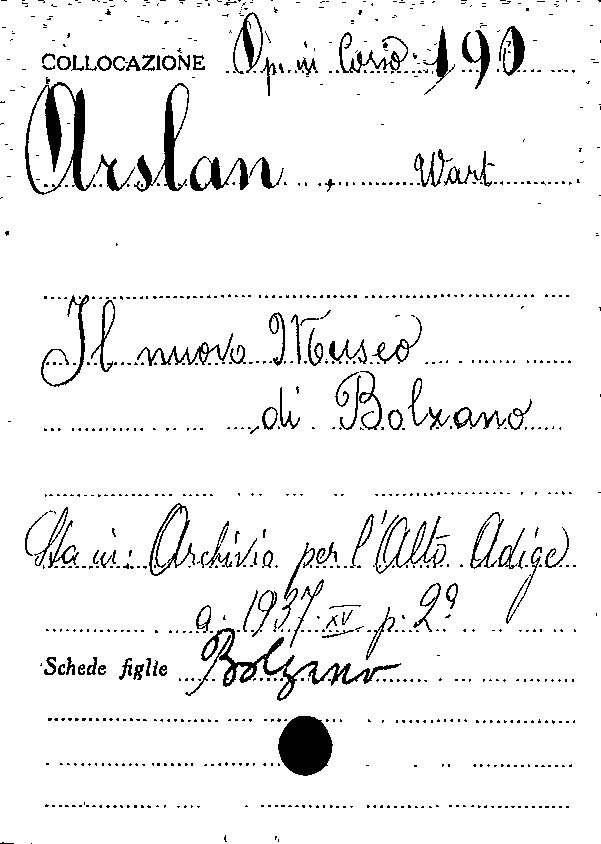 COLLOCAZIONE Op. in Corso 190
Arslan, Wart
Il nuovo Museo
di Bolzano
Sta in: Archivio per l'Alto Adige
a. 1937-XV p. 2ª
Schede figlie Bolzano